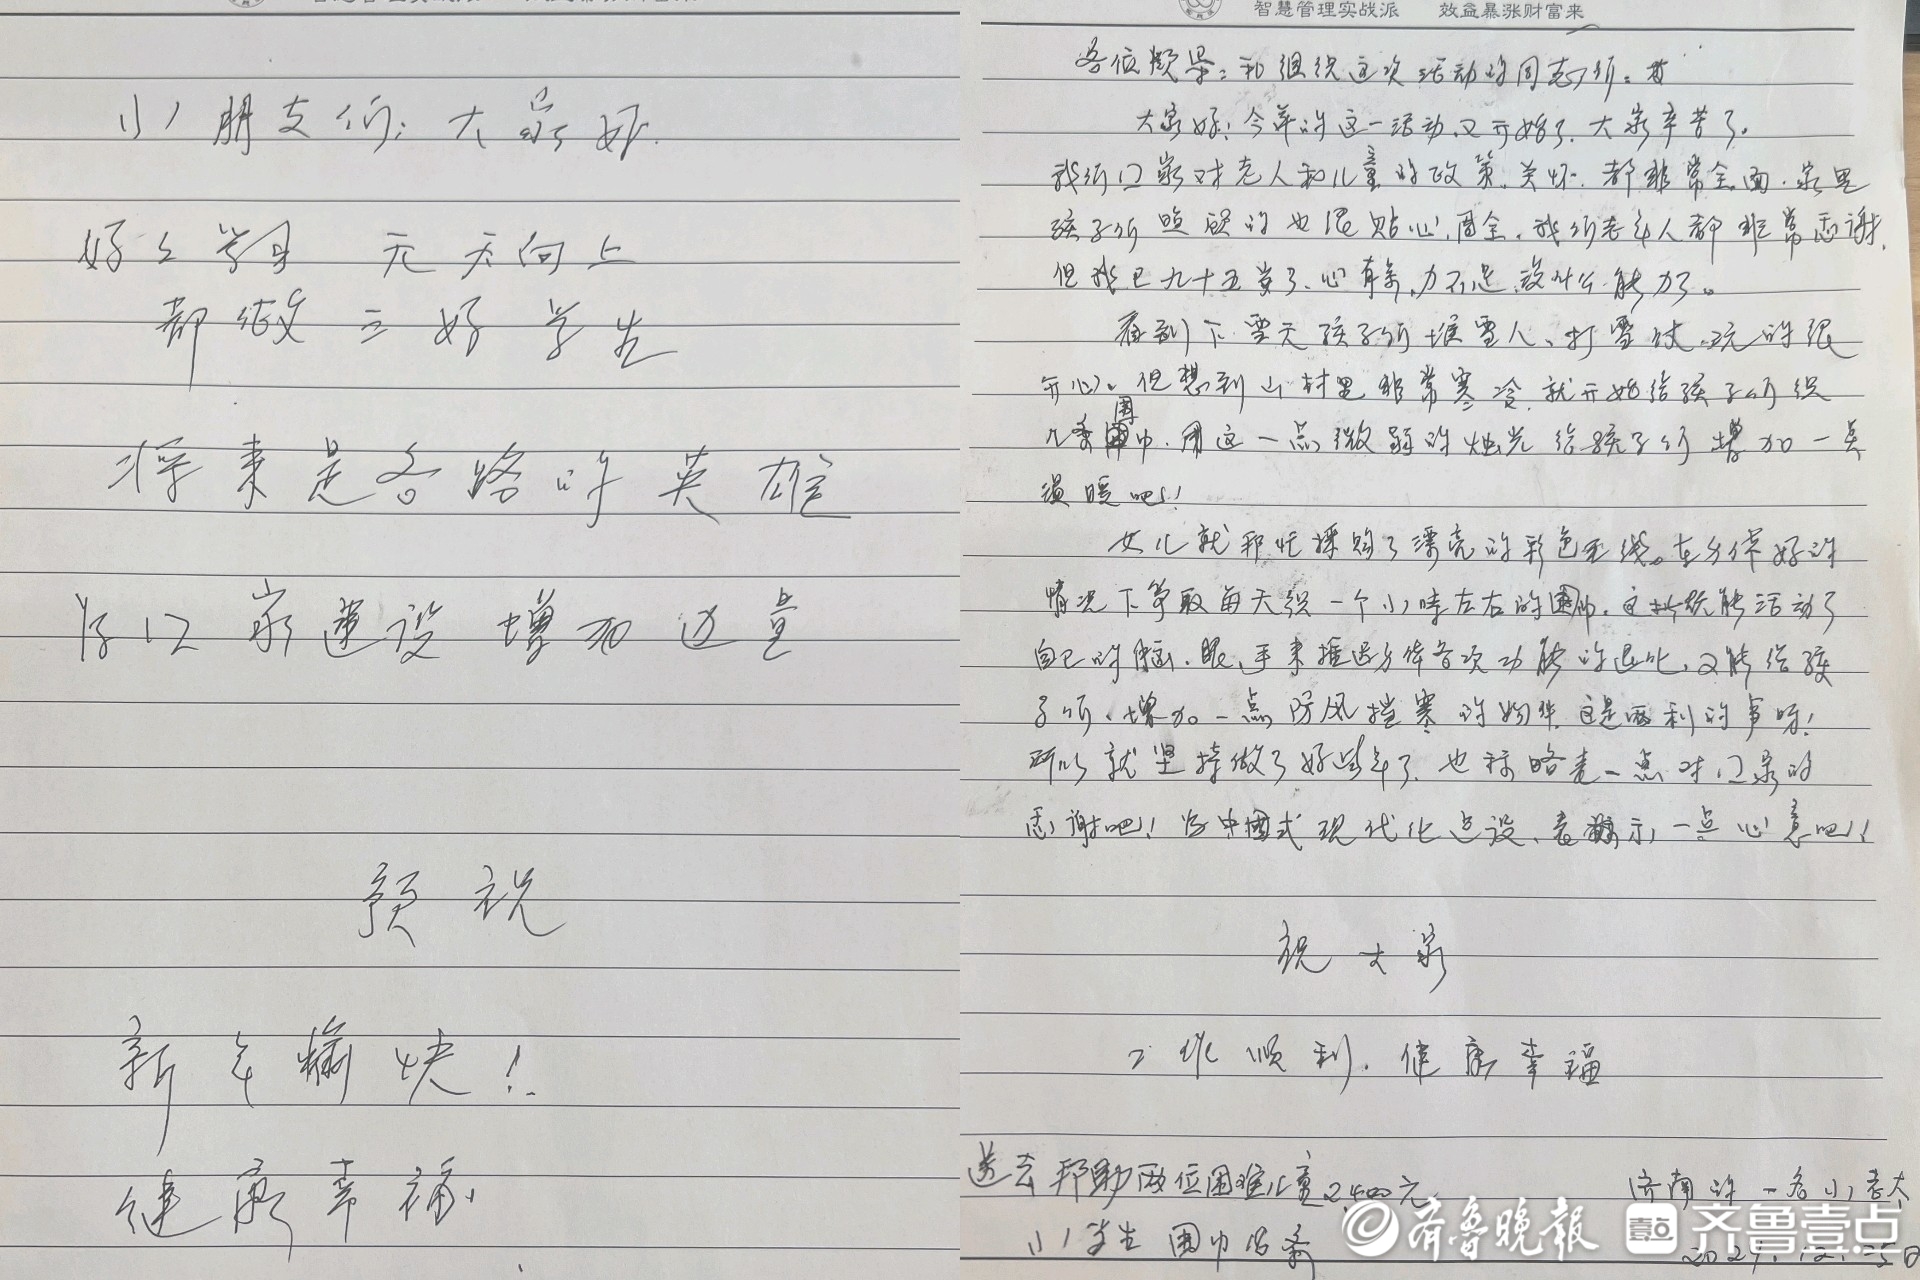 小朋友们：大家好.
好好学习 天天向上
都做三好学生
将来是各路的英雄
为国家建设增加力量
预祝
新年愉快！
健康幸福
智慧管理实战派 效益暴涨财富来
各位领导：和组织这次活动的同志们：
大家好！今年的这一活动又开始了，大家辛苦了。
我们国家对老人和儿童的政策、关怀，都非常全面，家里
孩子们照顾的也很贴心，周全，我们老年人都非常感谢，
但我已九十五岁了，心有余，力不足，没什么能力了。
看到下雪天孩子们堆雪人、打雪仗，玩的很
开心。但想到山村里非常寒冷，就开始给孩子们织
几条围巾，用这一点微弱的烛光给孩子们增加一点
温暖吧！
女儿就帮忙採购了漂亮的彩色毛线。在身体好的
情况下争取每天织一个小时左右的围巾，这样既能活动了
自己的脑、眼、手来推迟身体各项功能的退化，又能给孩
子们增加一点防风挡寒的物件，这是两利的事呀！
所以就坚持做了好些年了，也算略表一点对国家的
感谢吧！为中国式现代化建设，表示一点心意吧！
祝大家
工作顺利，健康幸福
送去帮助两位困难儿童2400元
济南的一名小老太
小学生围巾18条
2024.12.25日
齐鲁晚报 齐鲁壹点